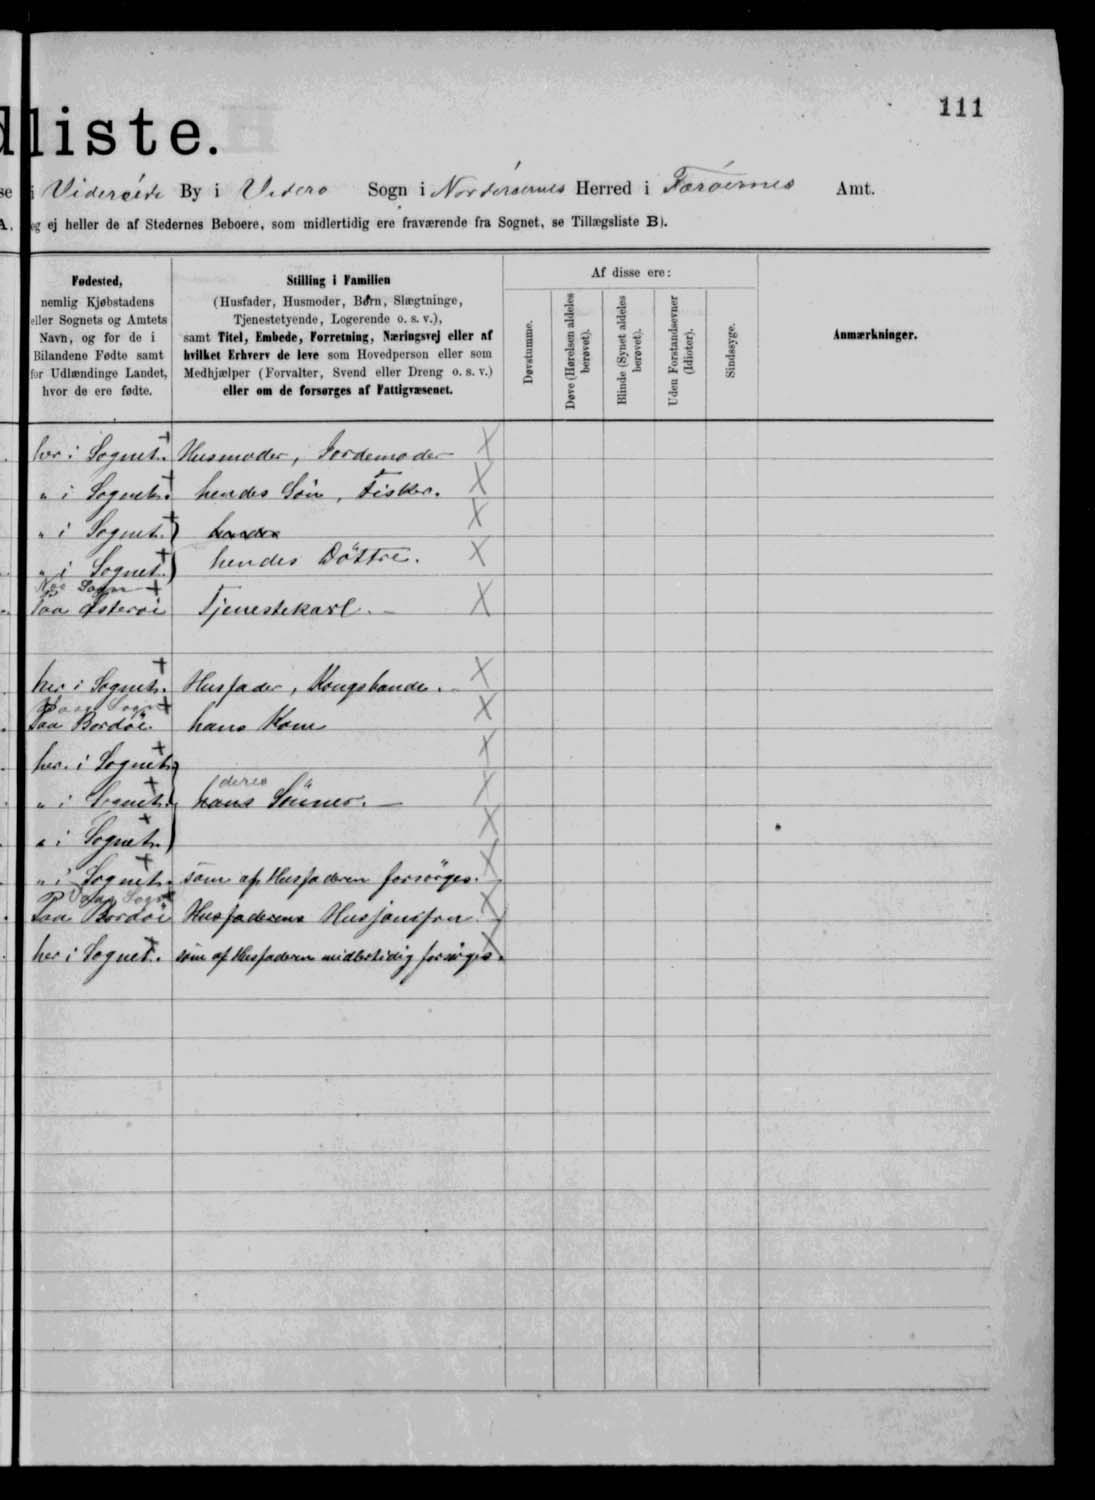 111
dliste.
se i Videreide By i Videro Sogn i Norderøernes Herred i Færøernes Amt.
A. og ej heller de af Stedernes Beboere, som midlertidig ere fraværende fra Sognet, se Tillægsliste B).
Fødested,
nemlig Kjøbstadens
eller Sognets og Amtets
Navn, og for de i
Bilandene Fødte samt
for Udlændinge Landet,
hvor de ere fødte.
Stilling i Familien
(Husfader, Husmoder, Børn, Slægtninge,
Tjenestetyende, Logerende o. s. v.),
samt Titel, Embede, Forretning, Næringsvej eller af
hvilket Erhverv de leve som Hovedperson eller som
Medhjælper (Forvalter, Svend eller Dreng o. s. v.)
eller om de forsørges af Fattigvæsenet.
Af disse ere:
Døvstumme.
Døve (Hørelsen aldeles
berøvet).
Blinde (Synet aldeles
berøvet).
Uden Forstandsevner
(Idioter).
Sindssyge.
Anmærkninger.
her i Sognet. Husmoder, Jordemoder X
" i Sognet. hendes Sön, Fisker. X
" i Sognet. ) hendes X
" i Sognet. ) hendes Döttre. X
Sogn
Paa Østerøi Tjenestekarl. X
her i Sognet. Husfader, Kongsbonde. X
Sogn
Paa Bordöi. hans Kone X
her i Sognet. X
deres
" i Sognet. hans Sönner. X
" i Sognet. X
" i Sognet. som af Husfaderen forsörges. X
Sogn
Paa Bordöi Husfaderens X
her i Sognet. som af Husfaderen midlertidig forsörges. X